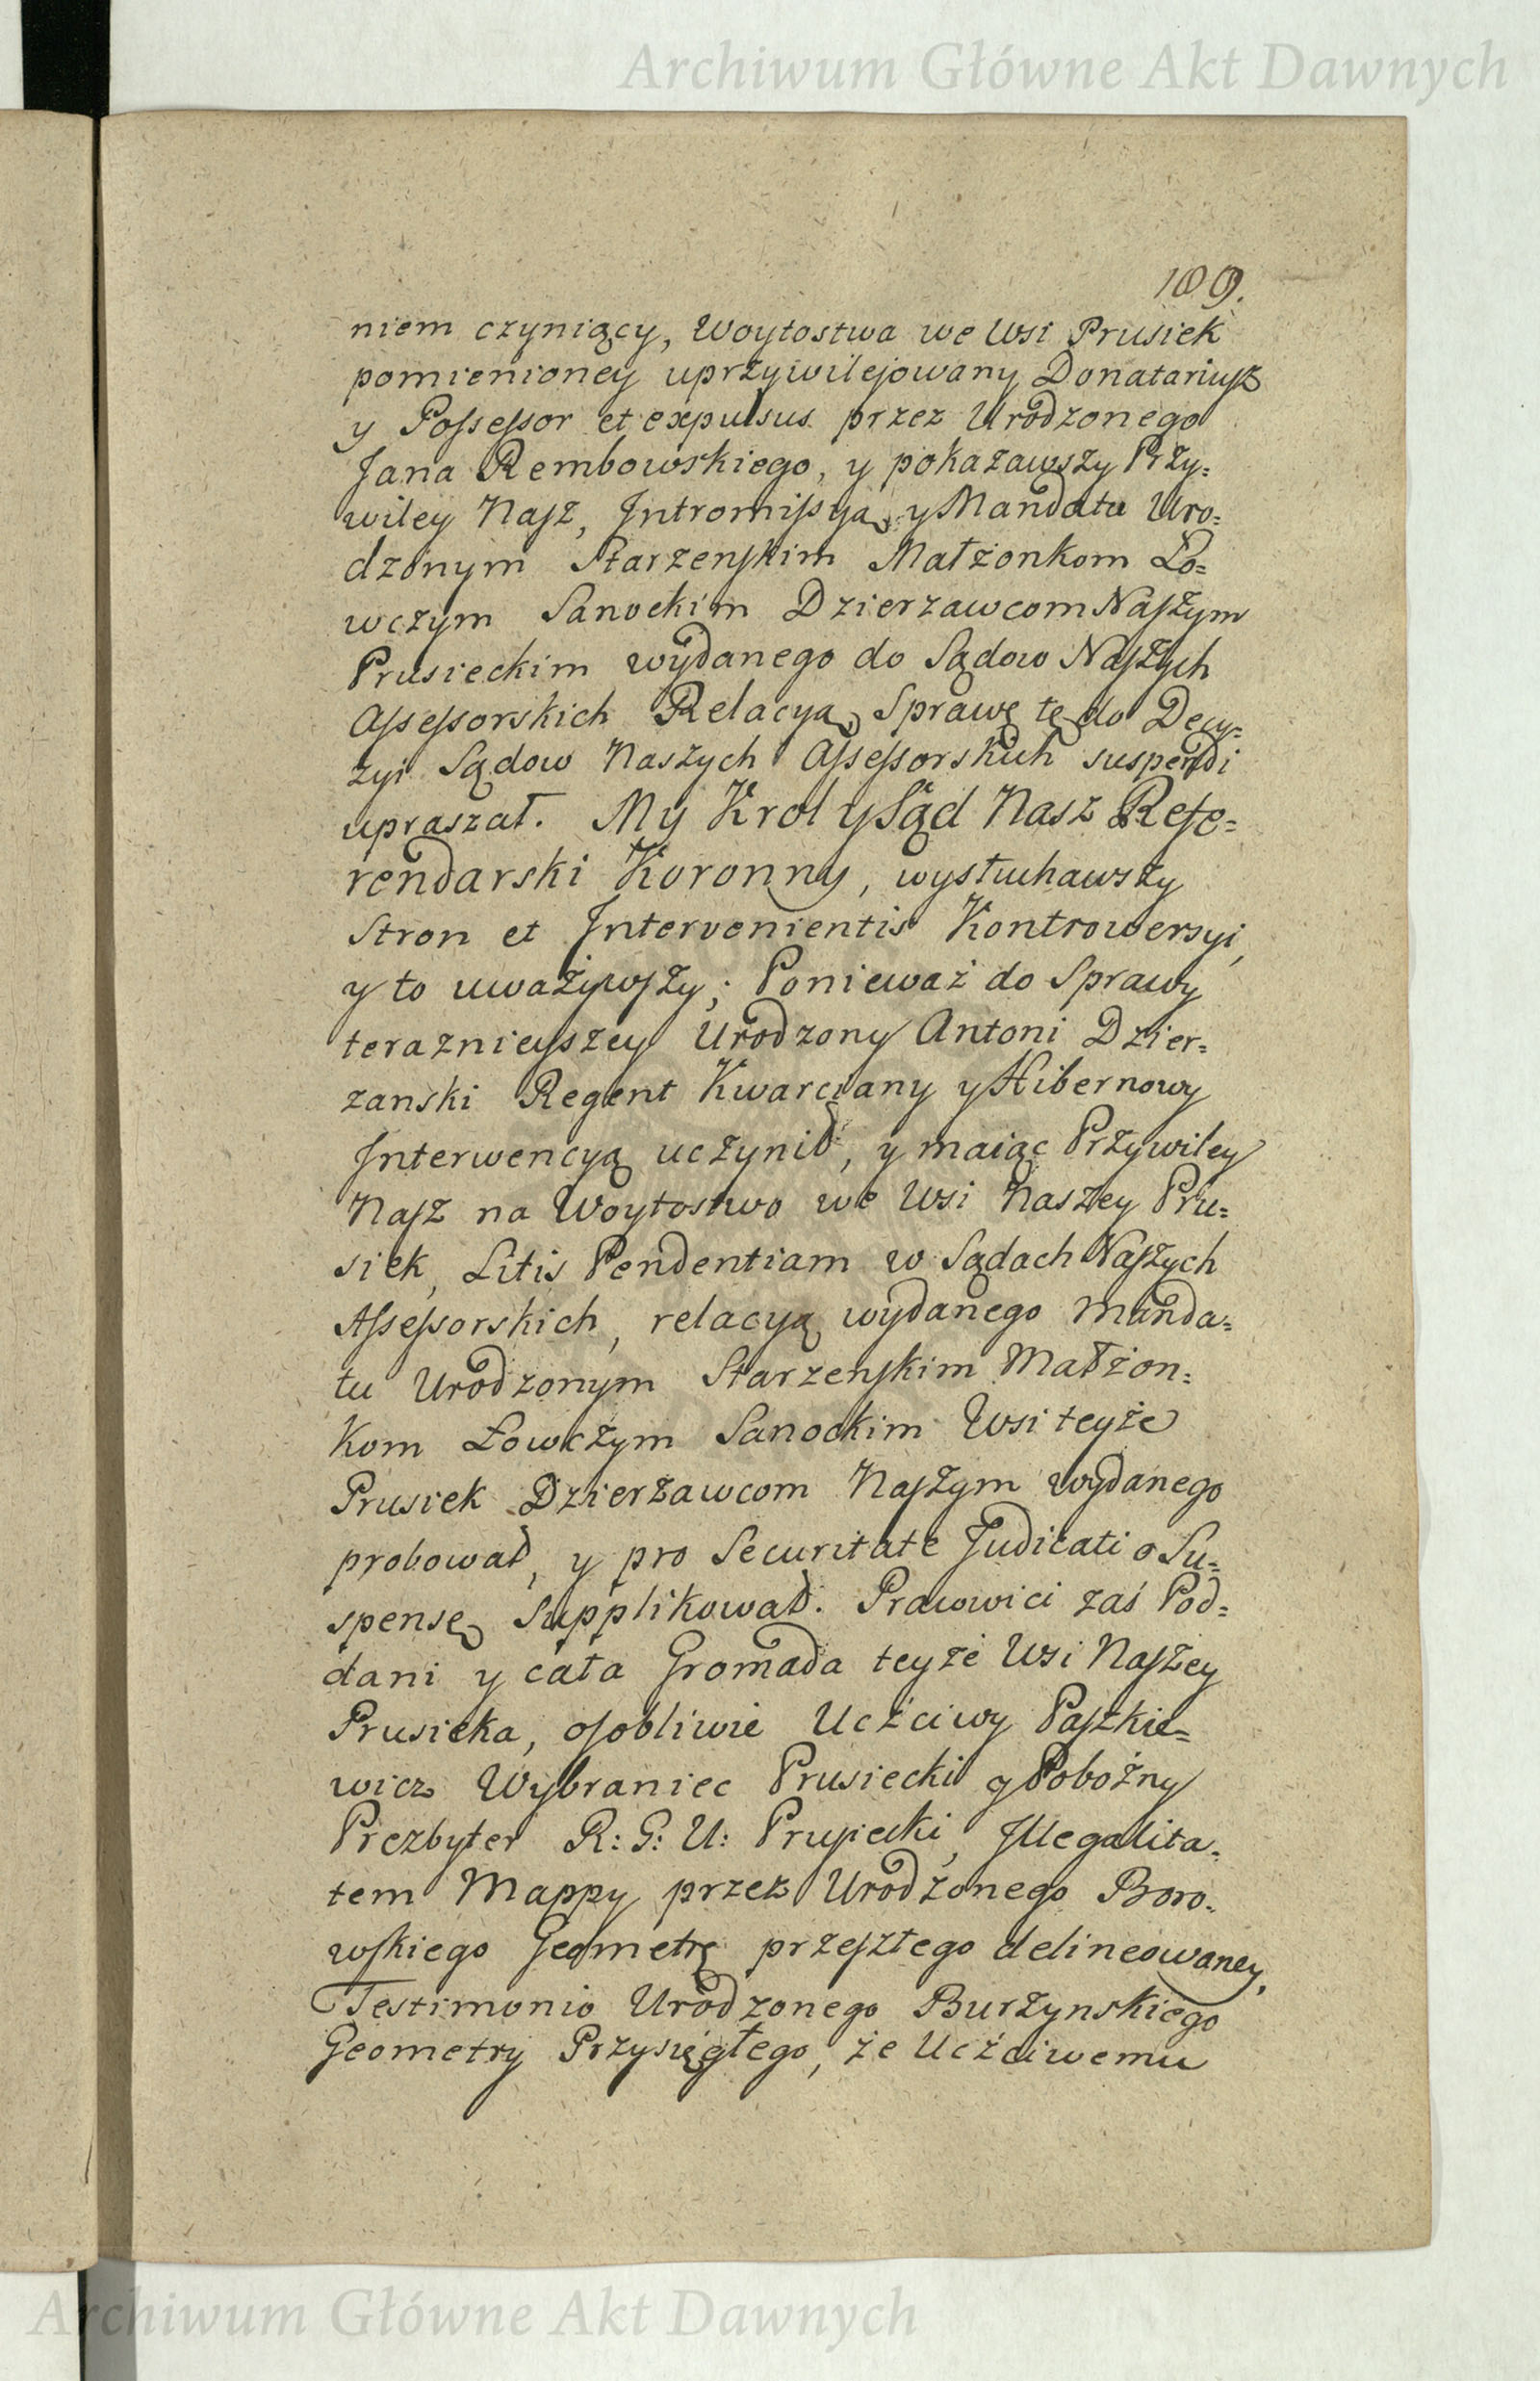 Archiwum Główne Akt Dawnych
109.
niem czyniący, Woytostwa we Wsi Prusiek
pomienioney uprzywilejowany Donatariusz
y Possessor et expulsus przez Urodzonego
Jana Rembowskiego, y pokazawszy Przy=
wiley Nasz, Intromissyą, y Mandatu Uro=
dzonym Starzenskim Małżonkom Ło=
wczym Sanockim Dzierzawcom Naszym
Prusieckim wydanego do Sądow Naszych
Assessorskich Relacyą, Sprawę tę do Decy=
zyi Sądow Naszych Assessorskich suspendi
upraszał. My Krol y Sąd Nasz Refe=
rendarski Koronny, wysłuchawszy
Stron et Intervenientis Kontrowersyi,
y to uważywszy; Ponieważ do Sprawy
teraznieyszey Urodzony Antoni Dzier=
zanski Regent Kwarciany y Hibernowy
Interwencyą uczynił, y maiąc Przywiley
Nasz na Woytostwo we Wsi Naszey Pru=
siek, Litis Pendentiam w Sądach Naszych
Assessorskich, relacyą wydanego Manda=
tu Urodzonym Starzenskim Małżon=
kom Łowczym Sanockim Wsi teyże
Prusiek Dzierżawcom Naszym wydanego
probował, y pro Securitate Judicati o Su=
spensę Supplikował. Prawowici zaś Pod=
dani y cała Gromada teyże Wsi Naszey
Prusieka, osobliwie Uczciwy Paszkie=
wicz Wybraniec Prusiecki y Pobożny
Prezbyter R: G: U: Prusiecki, Illegalita=
tem Mappy przez Urodzonego Boro=
wskiego Geometrę przeszłego delineowaney,
Testimonio Urodzonego Burzynskiego
Geometry Przysięgłego, że Uczciwemu
Archiwum Główne Akt Dawnych